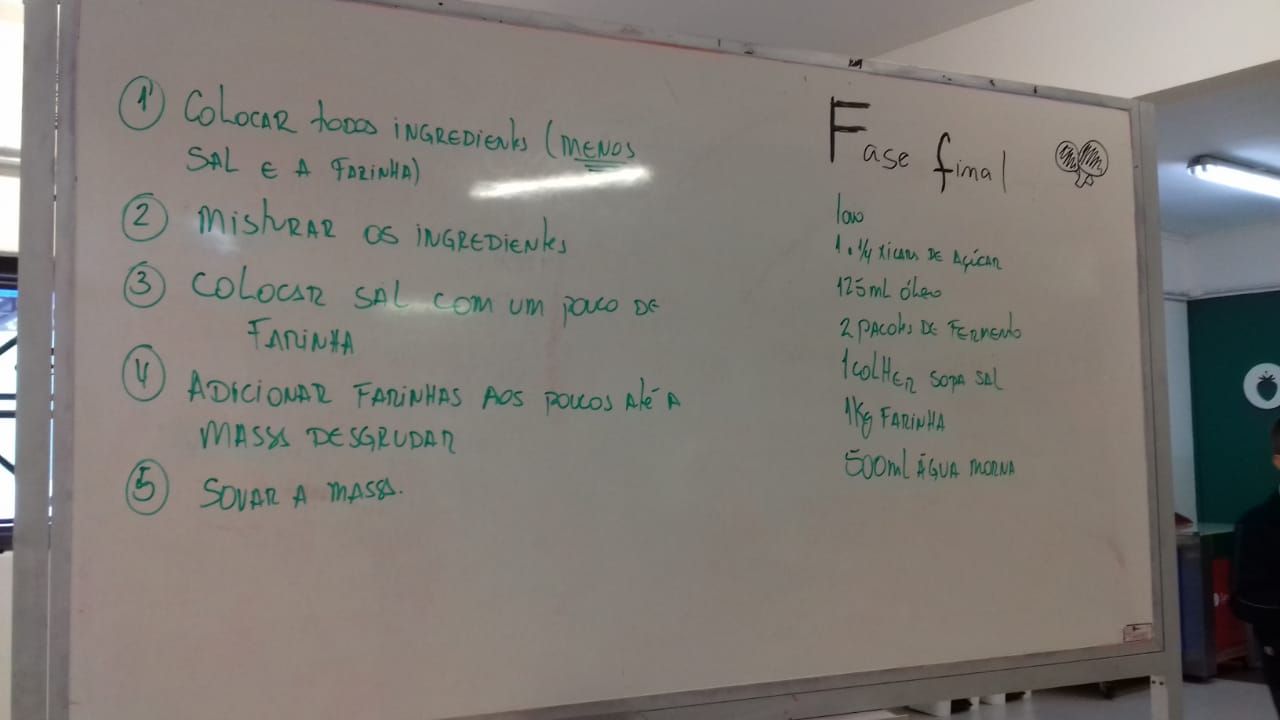 1 COLOCAR todos INGREDIENts (MENOS
SAL E A FARINHA)
2 MistuRAR OS INGREDIENtes
3 COLOCAR SAL COM UM POUCO DE
FARINHA
4 ADICIONAR FARINHAS AOS POUCOS Até A
MASSA DESGRUDAR
5 SOVAR A MASSA.
Fase final
1 . 1/4 XÍCARA DE AÇÚCAR
125ml óleo
2 PACOtes DE FERMENto
1 COLHER SOPA SAL
1Kg FARINHA
500ml ÁGUA MORNA